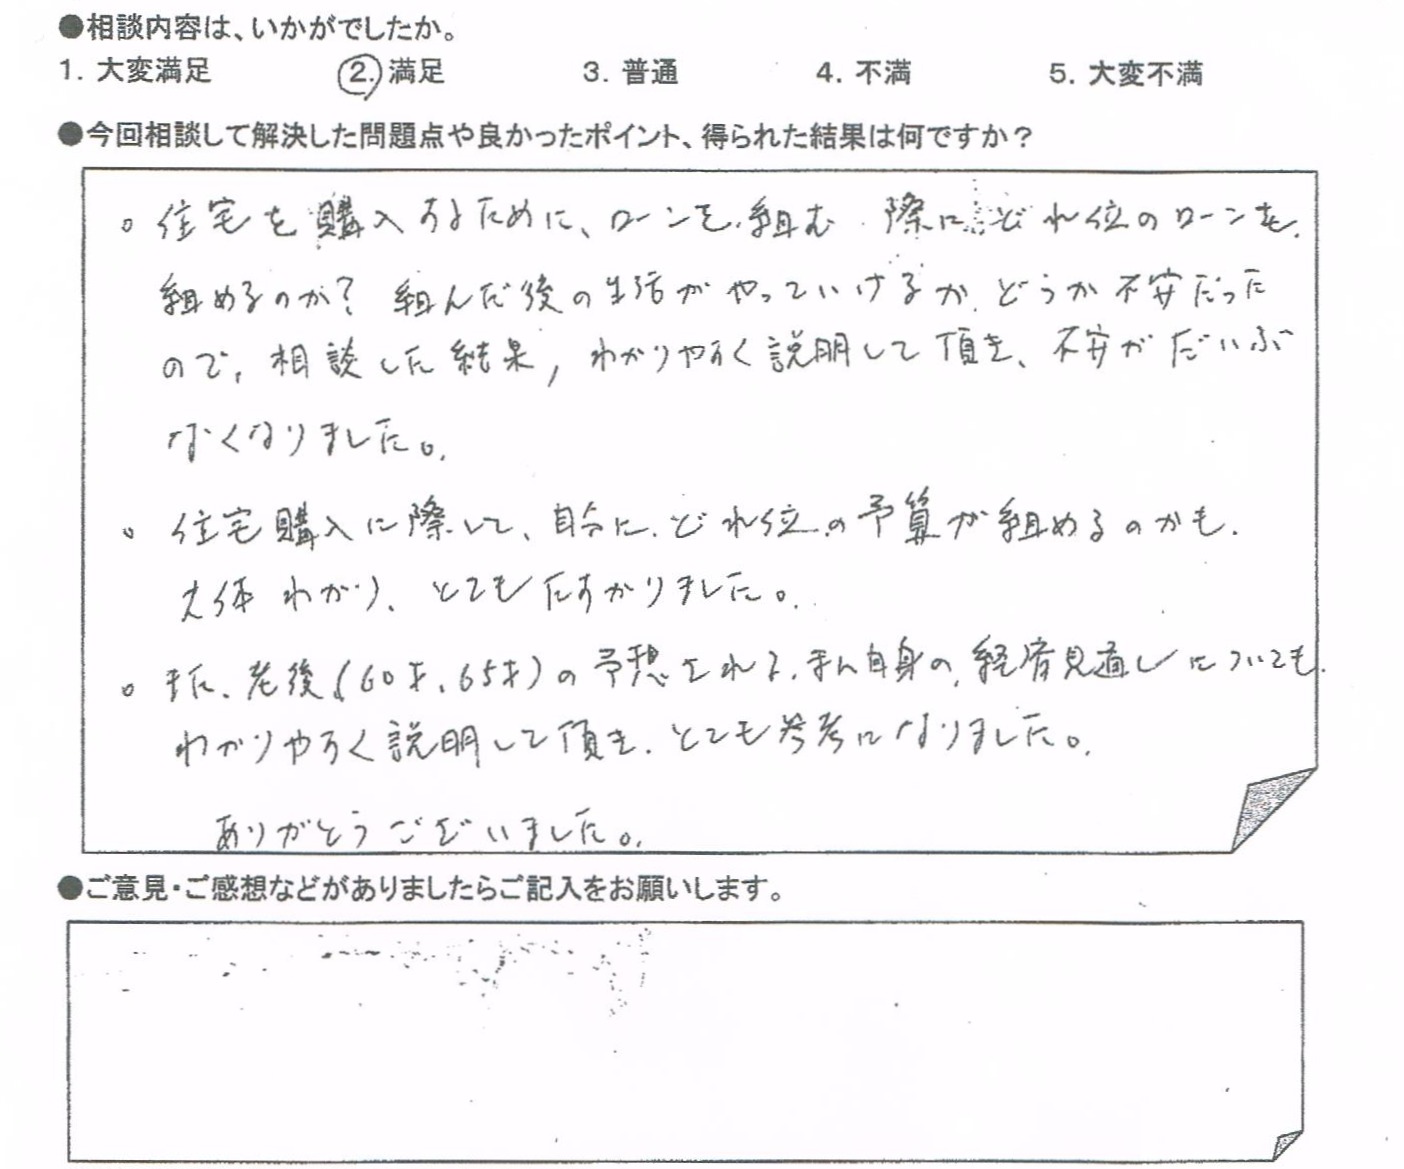 ●相談内容は、いかがでしたか。
1. 大変満足 2. 満足 3. 普通 4. 不満 5. 大変不満
●今回相談して解決した問題点や良かったポイント、得られた結果は何ですか？
。住宅を購入するために、ローンを組む 際に どれ位のローンを
組めるのか？ 組んだ後の生活がやっていけるか、どうか不安だった
ので、相談した結果、わかりやすく説明して頂き、不安がだいぶ
なくなりました。
。住宅購入に際して、自分に、どれ位の予算が組めるのかも、
大体わかり、とてもたすかりました。
。また、老後(60才、65才)の予想される、 自身の、経済見直しについても、
わかりやすく説明して頂き、とても参考になりました。
ありがとうございました。
●ご意見・ご感想などがありましたらご記入をお願いします。